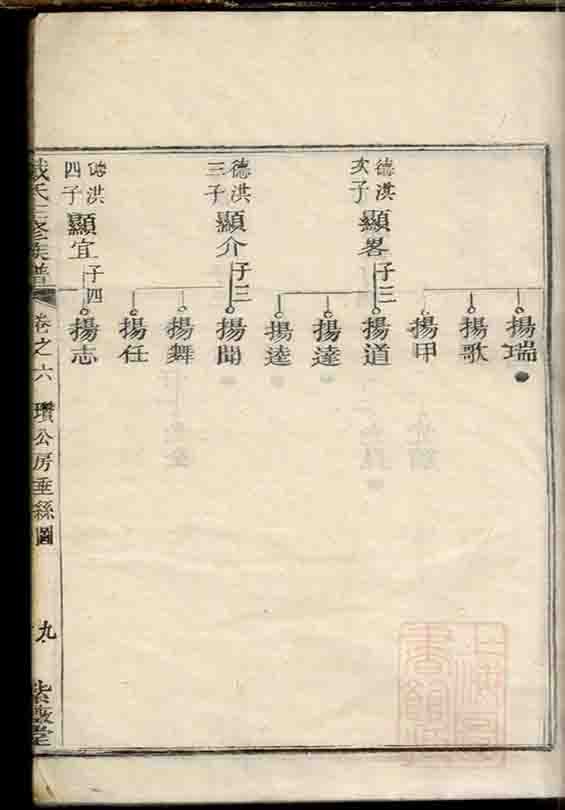 德洪
次子
顯畧
子三
德洪
三子
顯介
子三
德洪
四子
顯宜
子四
揚瑞
揚歌
揚甲
揚道
揚達
揚逵
揚聞
揚舞
揚任
揚志
氏三修族譜
卷之六
瓚公房垂絲圖
九
紫薇堂